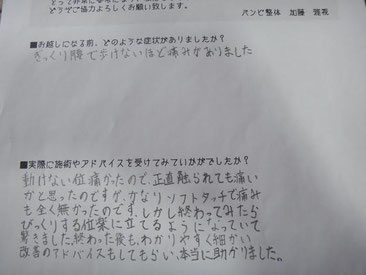 どうぞご協力よろしくお願い致します。
バンビ整体 加藤
■お越しになる前、どのような症状がありましたか?
ぎっくり腰で歩けないほど痛みがありました
■実際に施術やアドバイスを受けてみていかがでしたか?
動けない位痛かったので、正直触られても痛い
かと思ったのですが、かなりソフトタッチで痛み
も全く無かったのです。しかし終わってみたら
びっくりする位楽に立てるようになっていて
驚きました。終わった後も、わかりやすく細かい
改善のアドバイスもしてもらい、本当に助かりました。